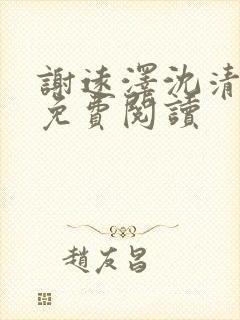 謝速澤沈清
免費閱讀
趙友昌